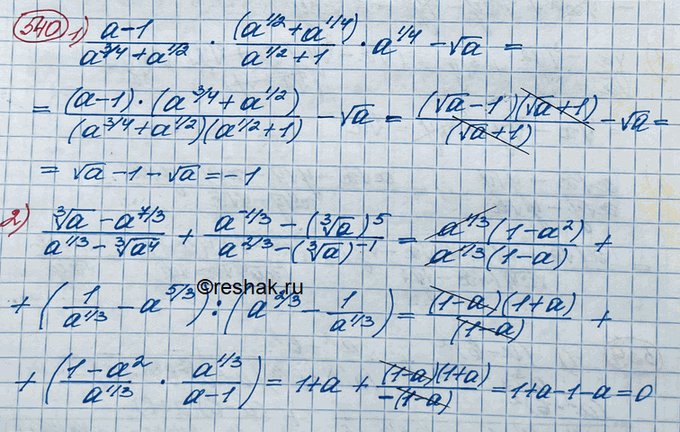 540 1) (a-1)/(a^(3/4)+a^(1/2)) · (a^(1/2)+a^(1/4))/(a^(1/2)+1) · a^(1/4) - √a =
= ((a-1)·(a^(3/4)+a^(1/2)))/((a^(3/4)+a^(1/2))(a^(1/2)+1)) - √a = ((√a-1)(√a+1))/(√a+1) - √a =
= √a - 1 - √a = -1
2) (∛a - a^(7/3))/(a^(1/3) - ∛a⁴) + (a^(-1/3) - (∛a)^5)/(a^(2/3) - (∛a)^(-1)) = (a^(1/3)(1-a²))/(a^(1/3)(1-a)) +
©reshak.ru
+ (1/a^(1/3) - a^(5/3)) : (a^(2/3) - 1/a^(1/3)) = ((1-a)(1+a))/(1-a) +
+ ((1-a²)/a^(1/3) · a^(1/3)/(a-1)) = 1+a + ((1-a)(1+a))/(-(1-a)) = 1+a-1-a=0